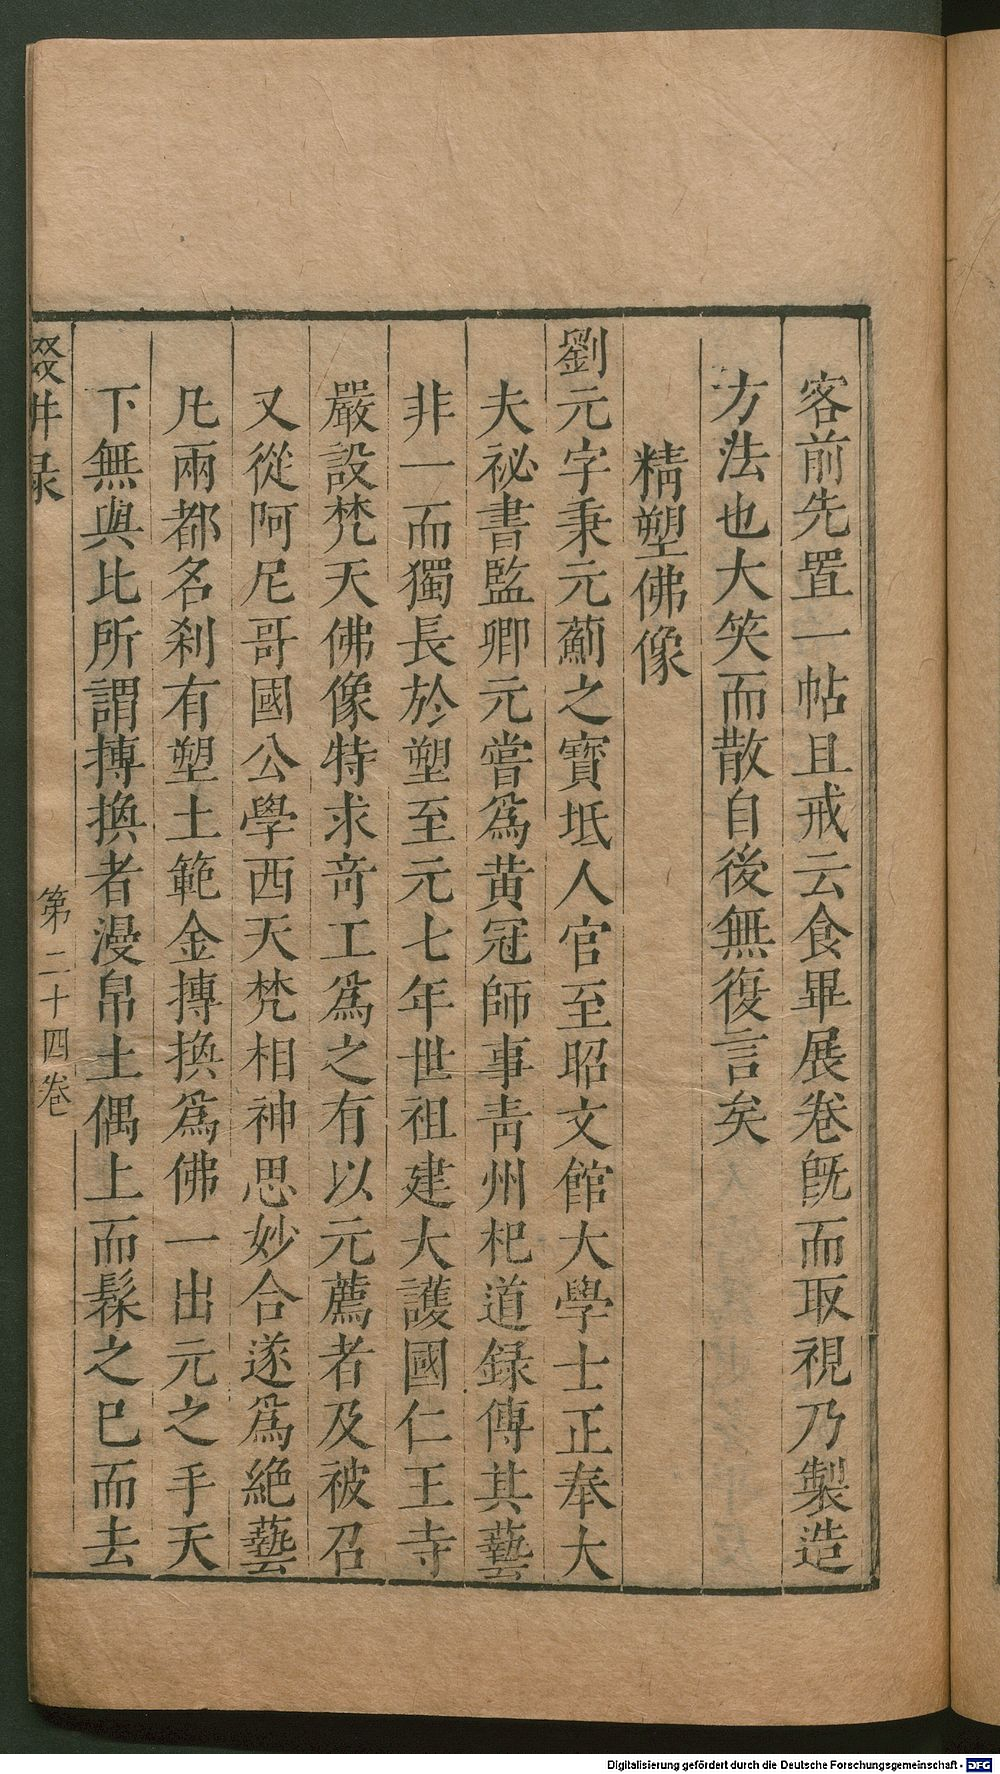 客前先置一帖且戒云食畢展卷旣而取視乃製造
方法也大笑而散自後無復言矣
精塑佛像
劉元字秉元薊之寶坻人官至昭文館大學士正奉大
夫祕書監卿元嘗爲黃冠師事青州杞道録傳其藝
非一而獨長於塑至元七年世祖建大護國仁王寺
嚴設梵天佛像特求奇工爲之有以元薦者及被召
又從阿尼哥國公學西天梵相神思妙合遂爲絶藝
凡兩都名刹有塑土範金摶換爲佛一出元之手天
下無與比所謂摶換者漫帛土偶上而髹之已而去
輟畊录
第二十四卷
Digitalisierung gefördert durch die Deutsche Forschungsgemeinschaft - DFG